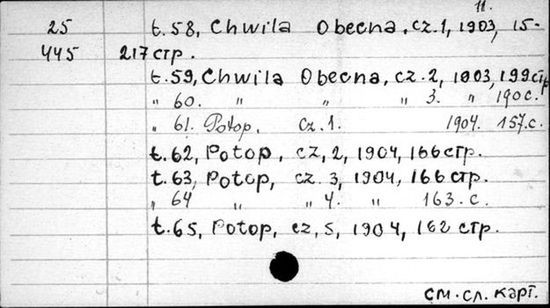 11.
25 t.58, Chwila Obecna, cz.1, 1903, 15-
445 217 стр.
t.59, Chwila Obecna, cz.2, 1903, 199 стр
„ 60. „ „ „ 3. „ 190 с.
„ 61. Potop. Cz.1. 1904. 157.с.
t.62, Potop, cz, 2, 1904, 166 стр.
t.63, Potop, cz. 3, 1904, 166 стр.
„ 64 „ „ 4. „ 163. с.
t.65, Potop, cz, 5, 1904, 162 стр.
см. сл. карт.